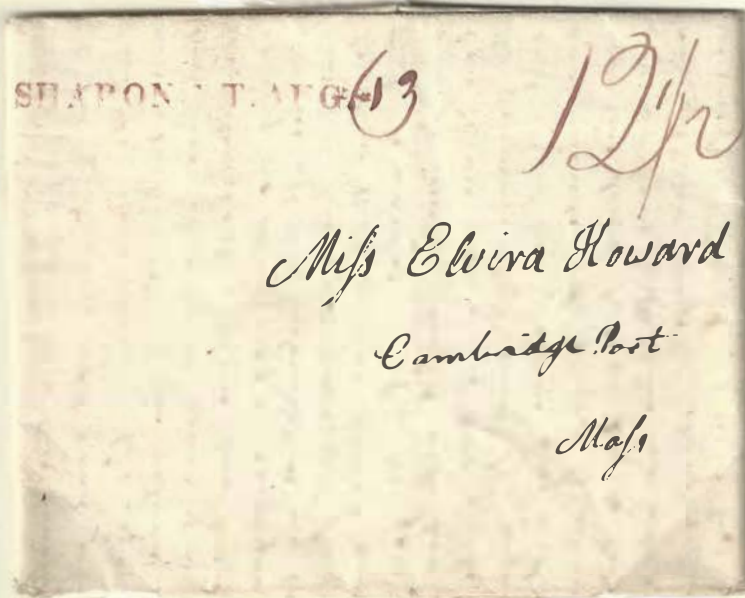 SHARON VT. AUG. 13
12 1/2
Miſs Elvira Howard
Cambridge Port
Maſs